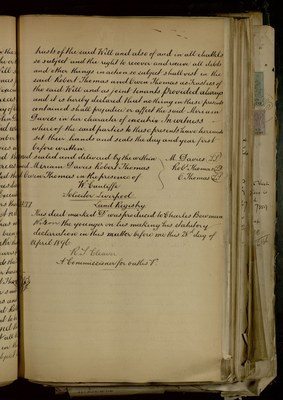 trusts of the said Will and also of and in all chattels
so subject and the right to recover and receive all debts
and other things in action so subject shall vest in the
said Robert Thomas and Owen Thomas as Trustees of
the said Will and as joint tenants Provided always
and it is hereby declared that nothing in these presents
contained shall prejudice or affect the said Meriam
Davies in her character of executrix In witness
whereof the said parties to these presents have hereunto
set their hands and seals the day and year first
before written.
Signed sealed and delivered by the within M. Davies
named Meriam Davies Robert Thomas Robt Thomas
and Owen Thomas in the presence of O Thomas
W. Cunliffe
Solicitor Liverpool
Land Registry
This deed marked D was produced to Charles Bowman
the younger on his making his statutory
declaration in this matter before me this 28th day of
April 1896
A Commissioner for oaths